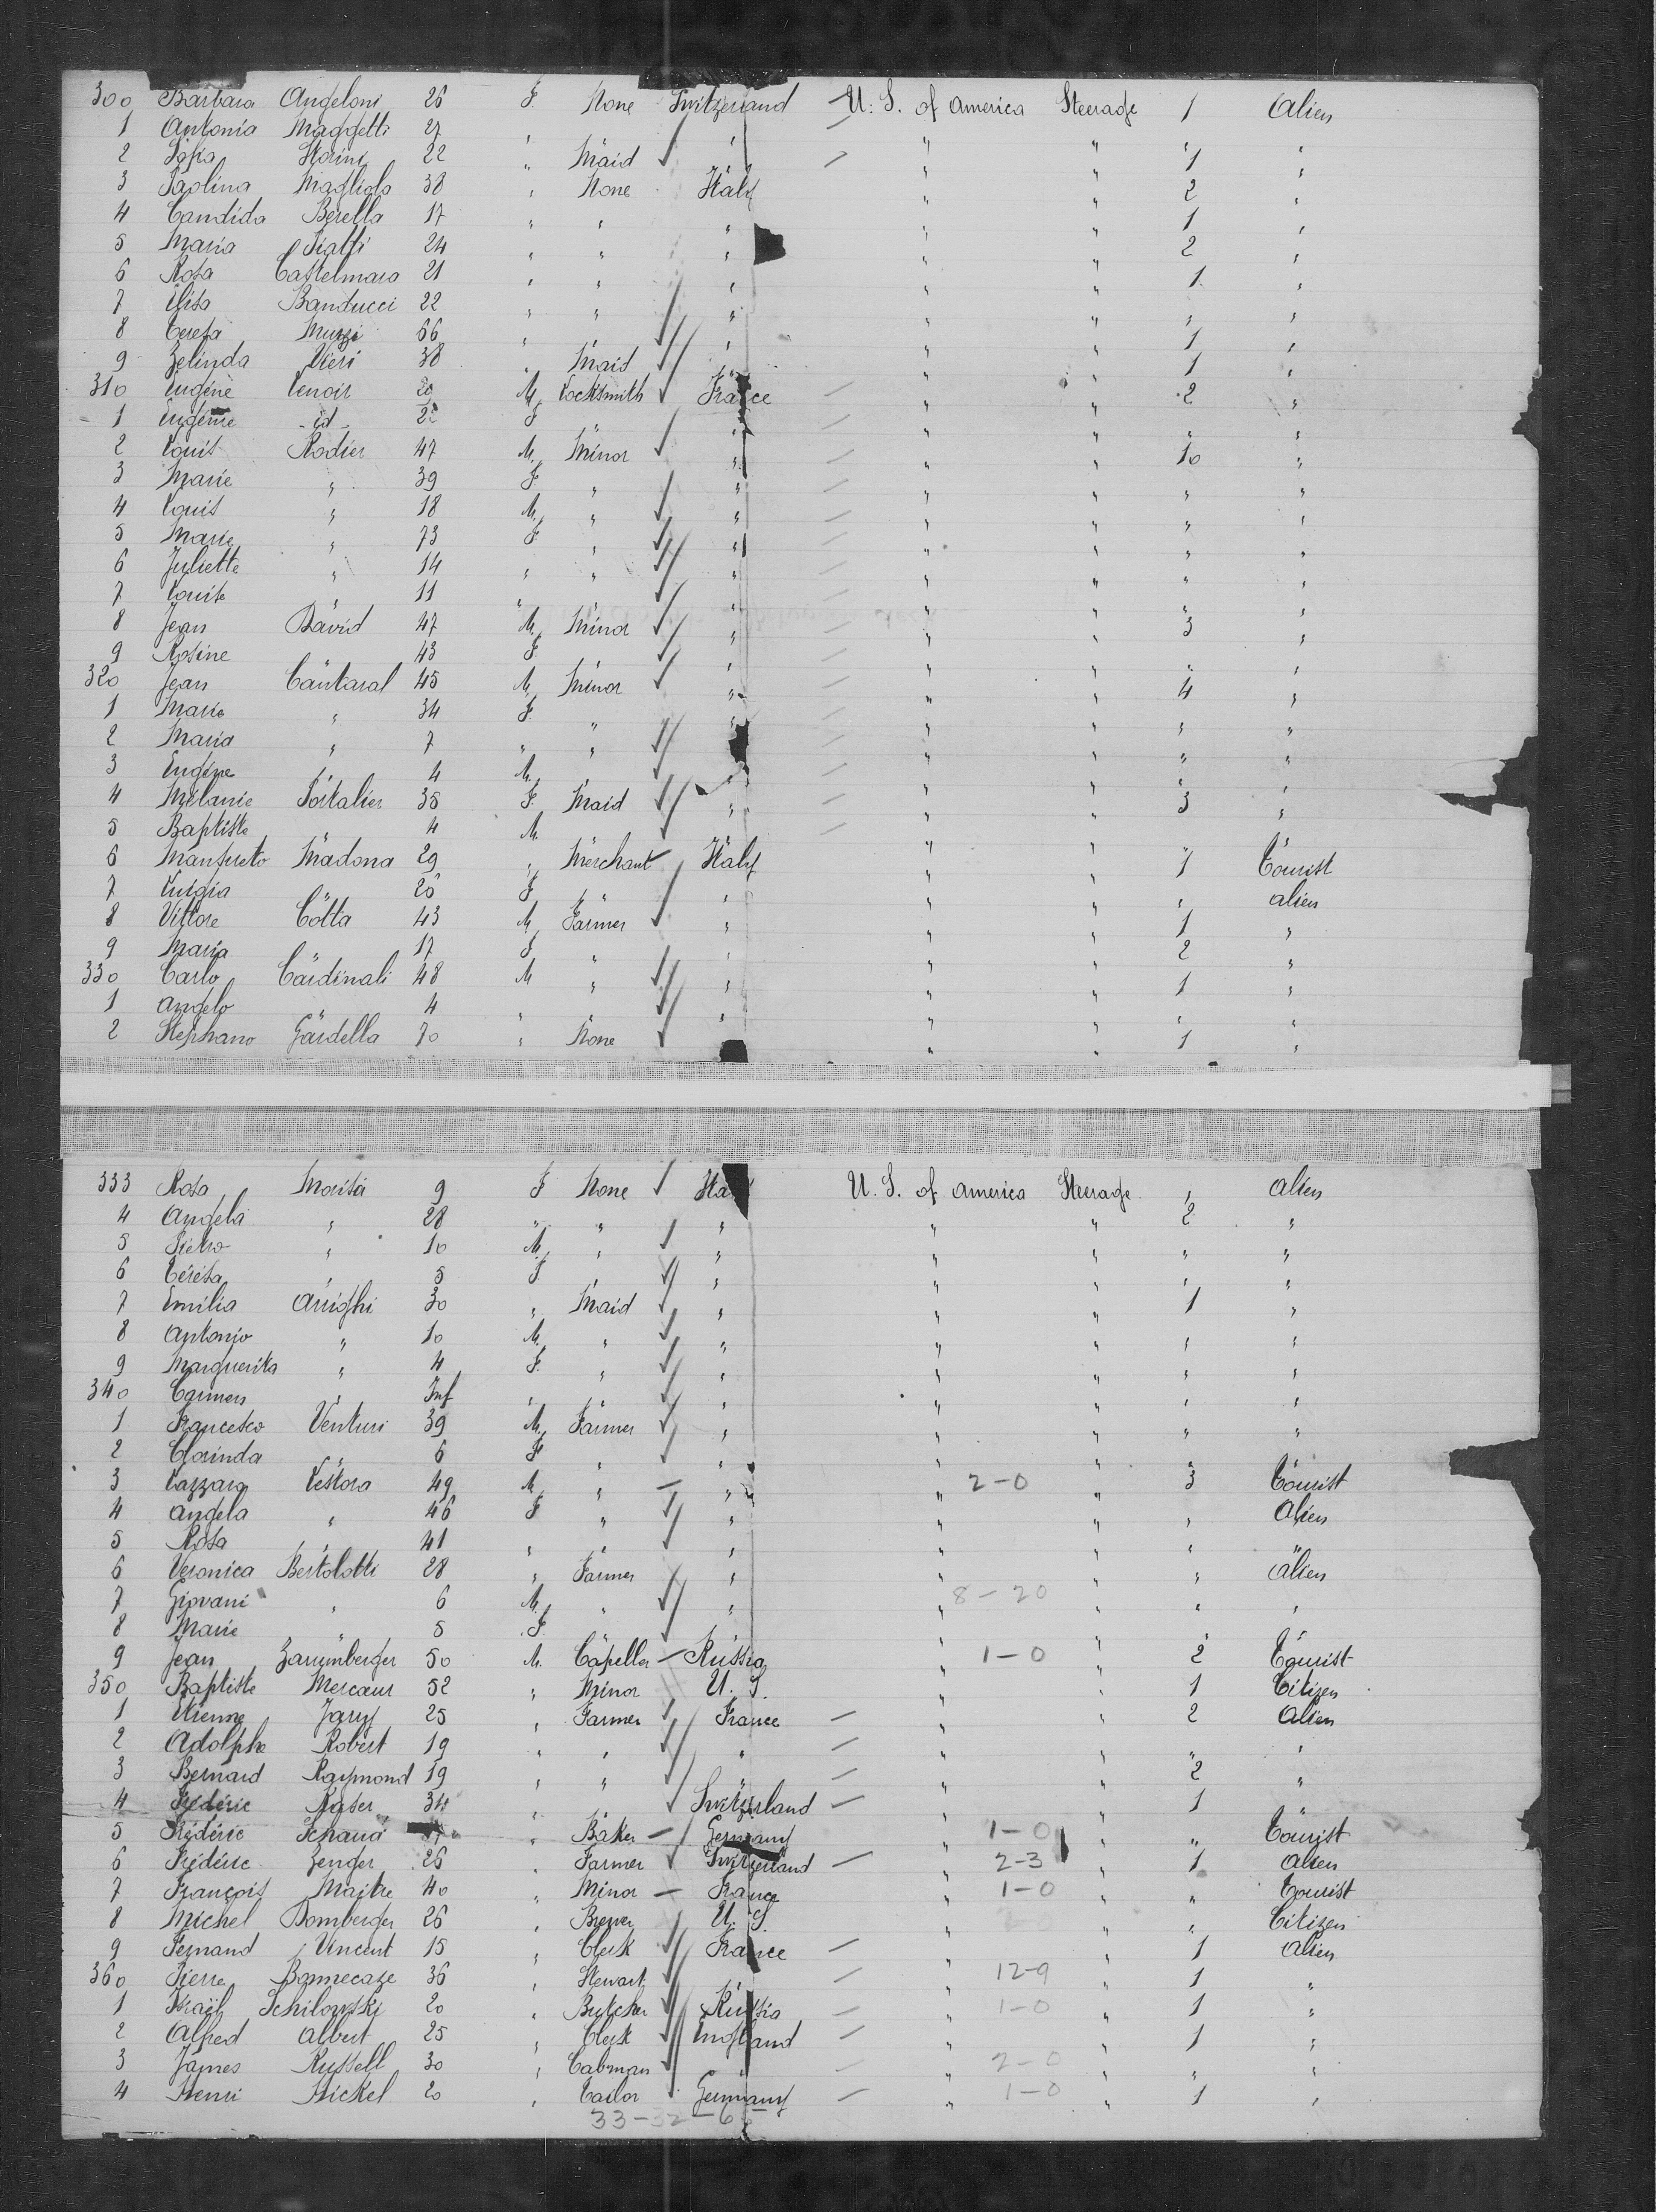 300 Barbara Angeloni 26 F. None Switzerland U. S. of America Steerage 1 Alien
1 Antonia Maggetti 27 " " " " "
2 Sofia Storini 22 " Maid " " " 1 "
3 Paolina Magliola 38 " None Italy " " 2 "
4 Candida Berella 17 " " " " " 1 "
5 Maria 24 " " " " " 2 "
6 Rosa Castelmara 21 " " " " " 1 "
7 Elisa Banducci 22 " " " " " " "
8 Teresa Muzzi 66 " " " " " 1 "
9 Zelinda Vieri 38 " Maid " " " 1 "
310 Eugène Lenoir M. Locksmith France " " 2 "
1 Eugénie - id - F " " " " "
2 Louis Rodier 47 M. Minor " " " 10 "
3 Marie " 39 F. " " " " " "
4 Louis " 18 M. " " " " " "
5 Marie " 73 F. " " " " " "
6 Juliette " 14 " " " " " " "
7 Louise " 11 " " " " " "
8 Jean David 47 M. Minor " " " 3 "
9 Rosine 43 F. " " " " "
320 Jean Cantaral 45 M. Minor " " " 4 "
1 Marie " 34 F. " " " " " "
2 Maria " 7 " " " " " " "
3 Eugène " 4 M. " " " " "
4 Mélanie Portalier 35 F. Maid " " " 3 "
5 Baptiste 4 M. " " " "
6 Manfueto Madona 29 " Merchant Italy " " 1 Tourist
7 Luigia 26 F " " " " " alien
8 Vittore Cotta 43 M. Farmer " " " 1 "
9 Maria 17 F " " " " 2 "
330 Carlo Cardinali 48 M " " " " 1 "
1 Angelo 4 " " " " " "
2 Stephano Gardella 70 " None " " 1 "
333 Rosa Morisa 9 F None Italy U. S. of America Steerage " alien
4 Angela " 28 " " " " " 2 "
5 Pietro " 10 M. " " " " " "
6 Teresa 5 F " " " " "
7 Emilia Arrighi 30 " Maid " " " 1 "
8 Antonio " 10 M. " " " " " "
9 Marguerita " 4 F. " " " " " "
340 Carmen " Inf " " " " " " "
1 Francesco Venturi 39 M. Farmer " " " " "
2 Clorinda " 6 F " " " "
3 Lazzaro Vestora 49 M. " " " 2-0 " 3 Tourist
4 Angela " 46 F " " " " " Alien
5 Rosa " 41 " " " " "
6 Veronica Bertolotti 28 " Farmer " " " " alien
7 Giovani " 6 M. " " " 8-20 " " "
8 Marie " 5 F. " "
9 Jean Zarumberger 50 M. Russia " 1-0 " 2 Tourist
350 Baptiste Mercœur 52 " Minor U. S. " " 1 Citizen
1 Etienne Jary 25 " Farmer France " " 2 Alien
2 Adolphe Robert 19 " " " " " " "
3 Bernard Raymond 19 " " " " " 2 "
4 Frédéric 34 " Switzerland " " 1 "
5 Frédéric " Baker Germany " 1-0 " " Tourist
6 Frédéric Zenger 26 " Farmer Switzerland " 2-3 " 1 alien
7 François Maitre 40 " Minor France " 1-0 " " Tourist
8 Michel Bomberger 26 " Brewer U. S. " " " Citizen
9 Fernand Vincent 15 " Clerk France " " 1 Alien
360 Pierre Bonnecaze 36 " Stewart " 12-9 " 1 "
1 Israël Schilowski 20 " Butcher Russia " 1-0 " 1 "
2 Alfred Albert 25 " Clerk England " " 1 "
3 James Russell 30 " Cabman " " 2-0 " " "
4 Henri Nickel 20 " Tailor Germany " 1-0 " 1 "
33-32-65